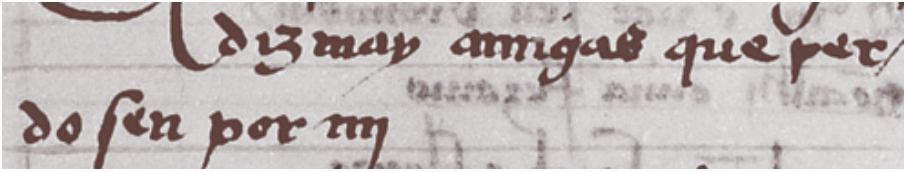 dizmay amigas que per
do sen por mi